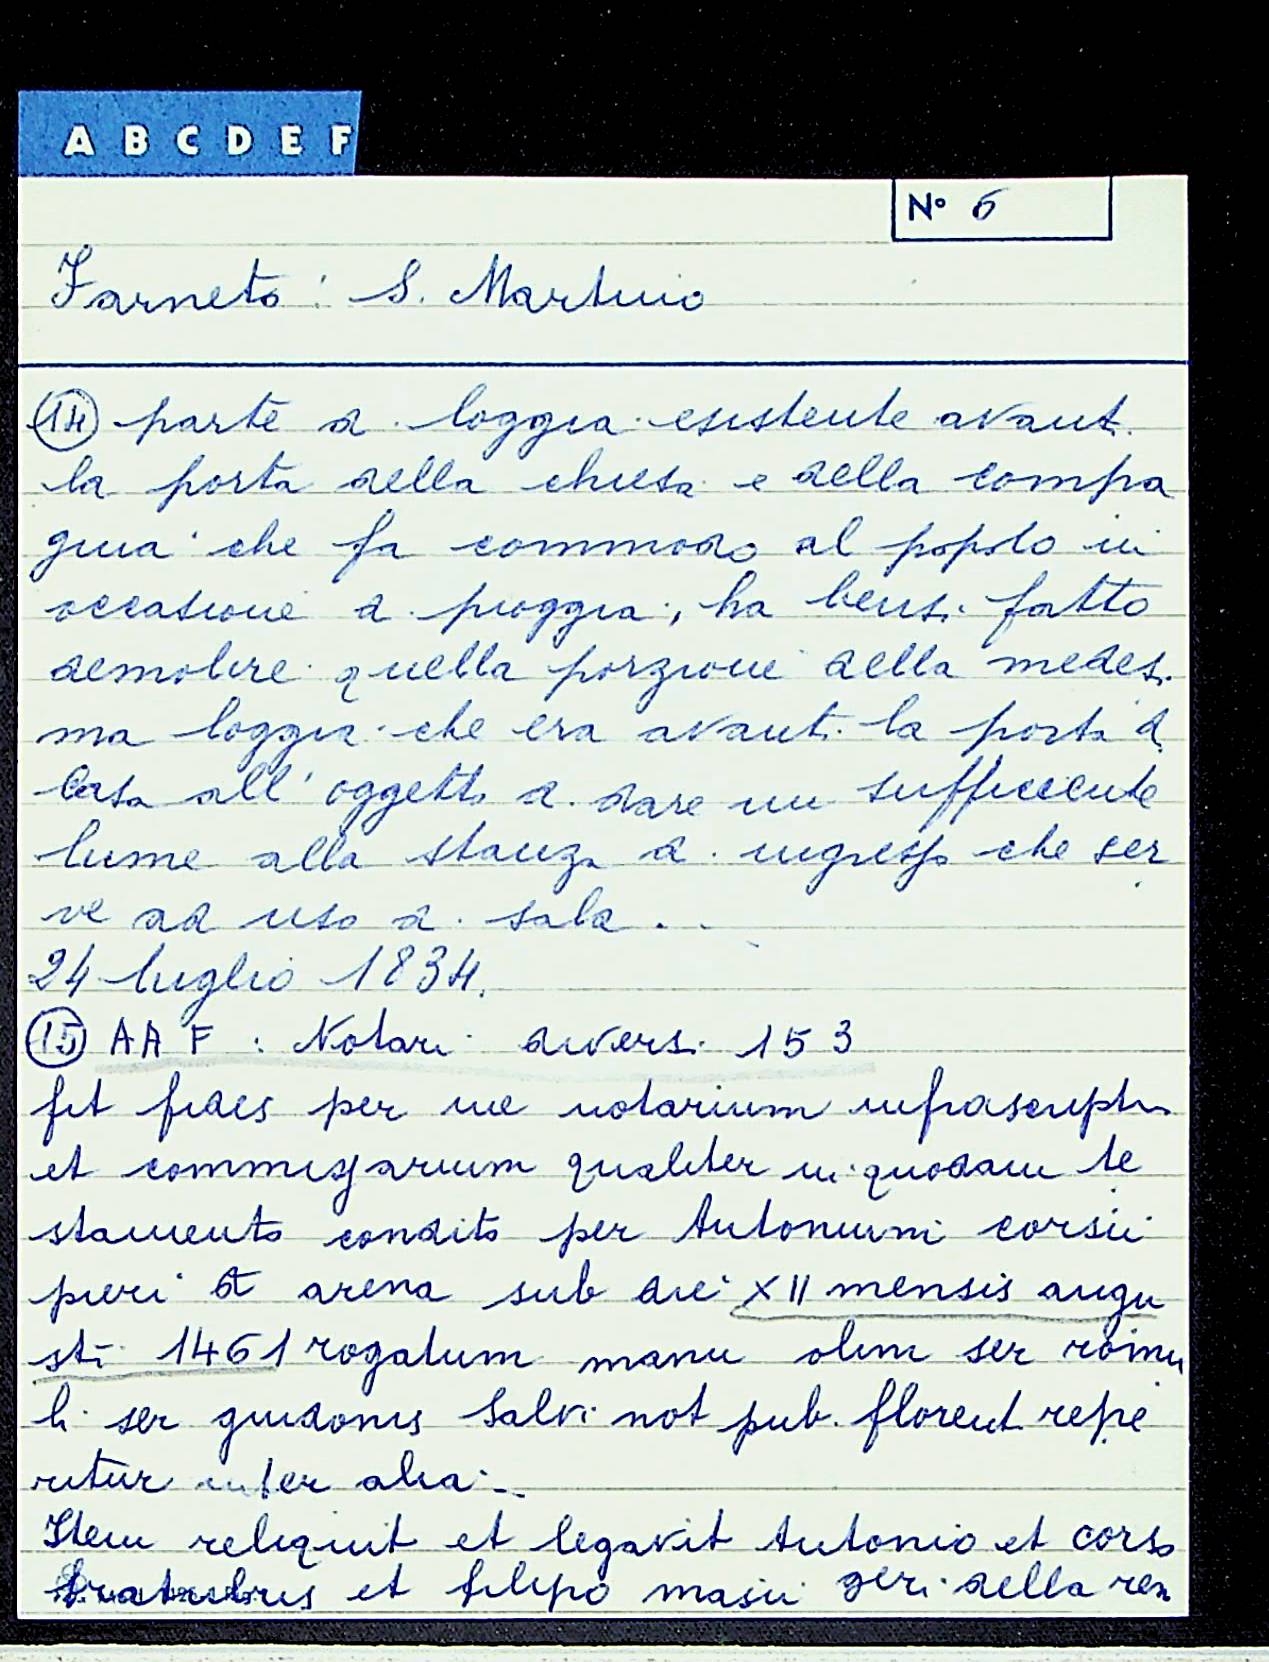 A B C D E F
N° 6
Farneto: S. Martino
14 parte di loggia esistente avanti
la porta della chiesa e della compa
gnia che fa commodo al popolo in
occasione di pioggia, ha bensì fatto
demolire quella porzione della medesi
ma loggia che era avanti la porta di
casa all'oggetto di dare un sufficiente
lume alla stanza di ingresso che ser
ve ad uso di sala..
24 luglio 1834.
15 AAF: Notari diversi 153
fit fides per me notarium infrascriptum
et commissarium qualiter in quodam te
stamento condito per Antonium corsii
pieri arena sub die XII mensis augu
sti 1461 rogatum manu olim ser romu
li ser guidonis Salvi not pub. florent. repe
ritur inter alia..
Item reliquit et legavit Antonio et corso
fratribus et filipo masii geri della ren